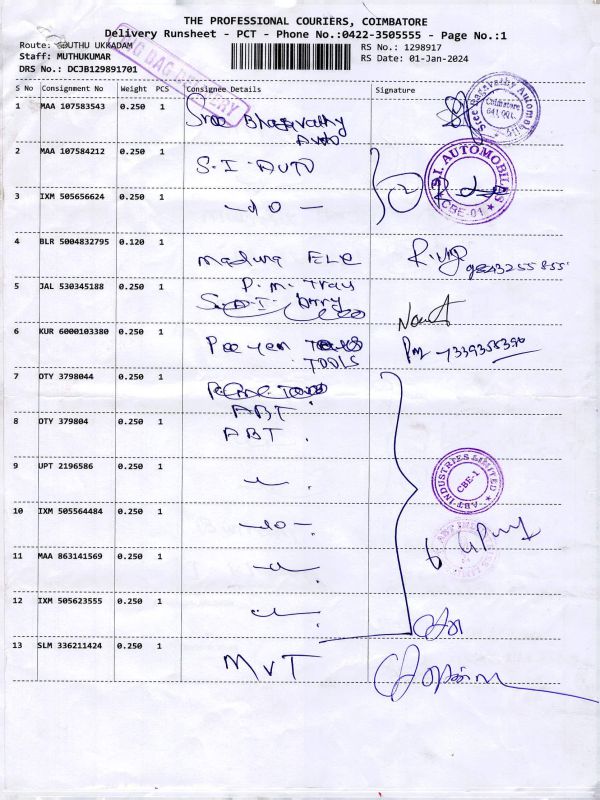 THE PROFESSIONAL COURIERS, COIMBATORE
Delivery Runsheet - PCT - Phone No.:0422-3505555 - Page No.:1
Route: UKKADAM
Staff: MUTHUKUMAR
DRS No.: DCJB129891701
RS No.: 1298917
RS Date: 01-Jan-2024
S No Consignment No Weight PCS Consignee Details Signature
1 MAA 107583543 0.250 1 Sree Bhagavathy Auto
2 MAA 107584212 0.250 1 S.I. AUTO
3 IXM 505656624 0.250 1 -do-
4 BLR 5004832795 0.120 1 Madura ELE
5 JAL 530345188 0.250 1 P.M. Tray
6 KUR 6000103380 0.250 1 TOOLS
7 OTY 3798044 0.250 1 ABT
8 OTY 379804 0.250 1 ABT
9 UPT 2196586 0.250 1
10 IXM 505564484 0.250 1 -do-
11 MAA 863141569 0.250 1
12 IXM 505623555 0.250 1
13 SLM 336211424 0.250 1 MVT
S.I. AUTOMOBILES
CBE-01
ABT INDUSTRIES LIMITED
CBE-1